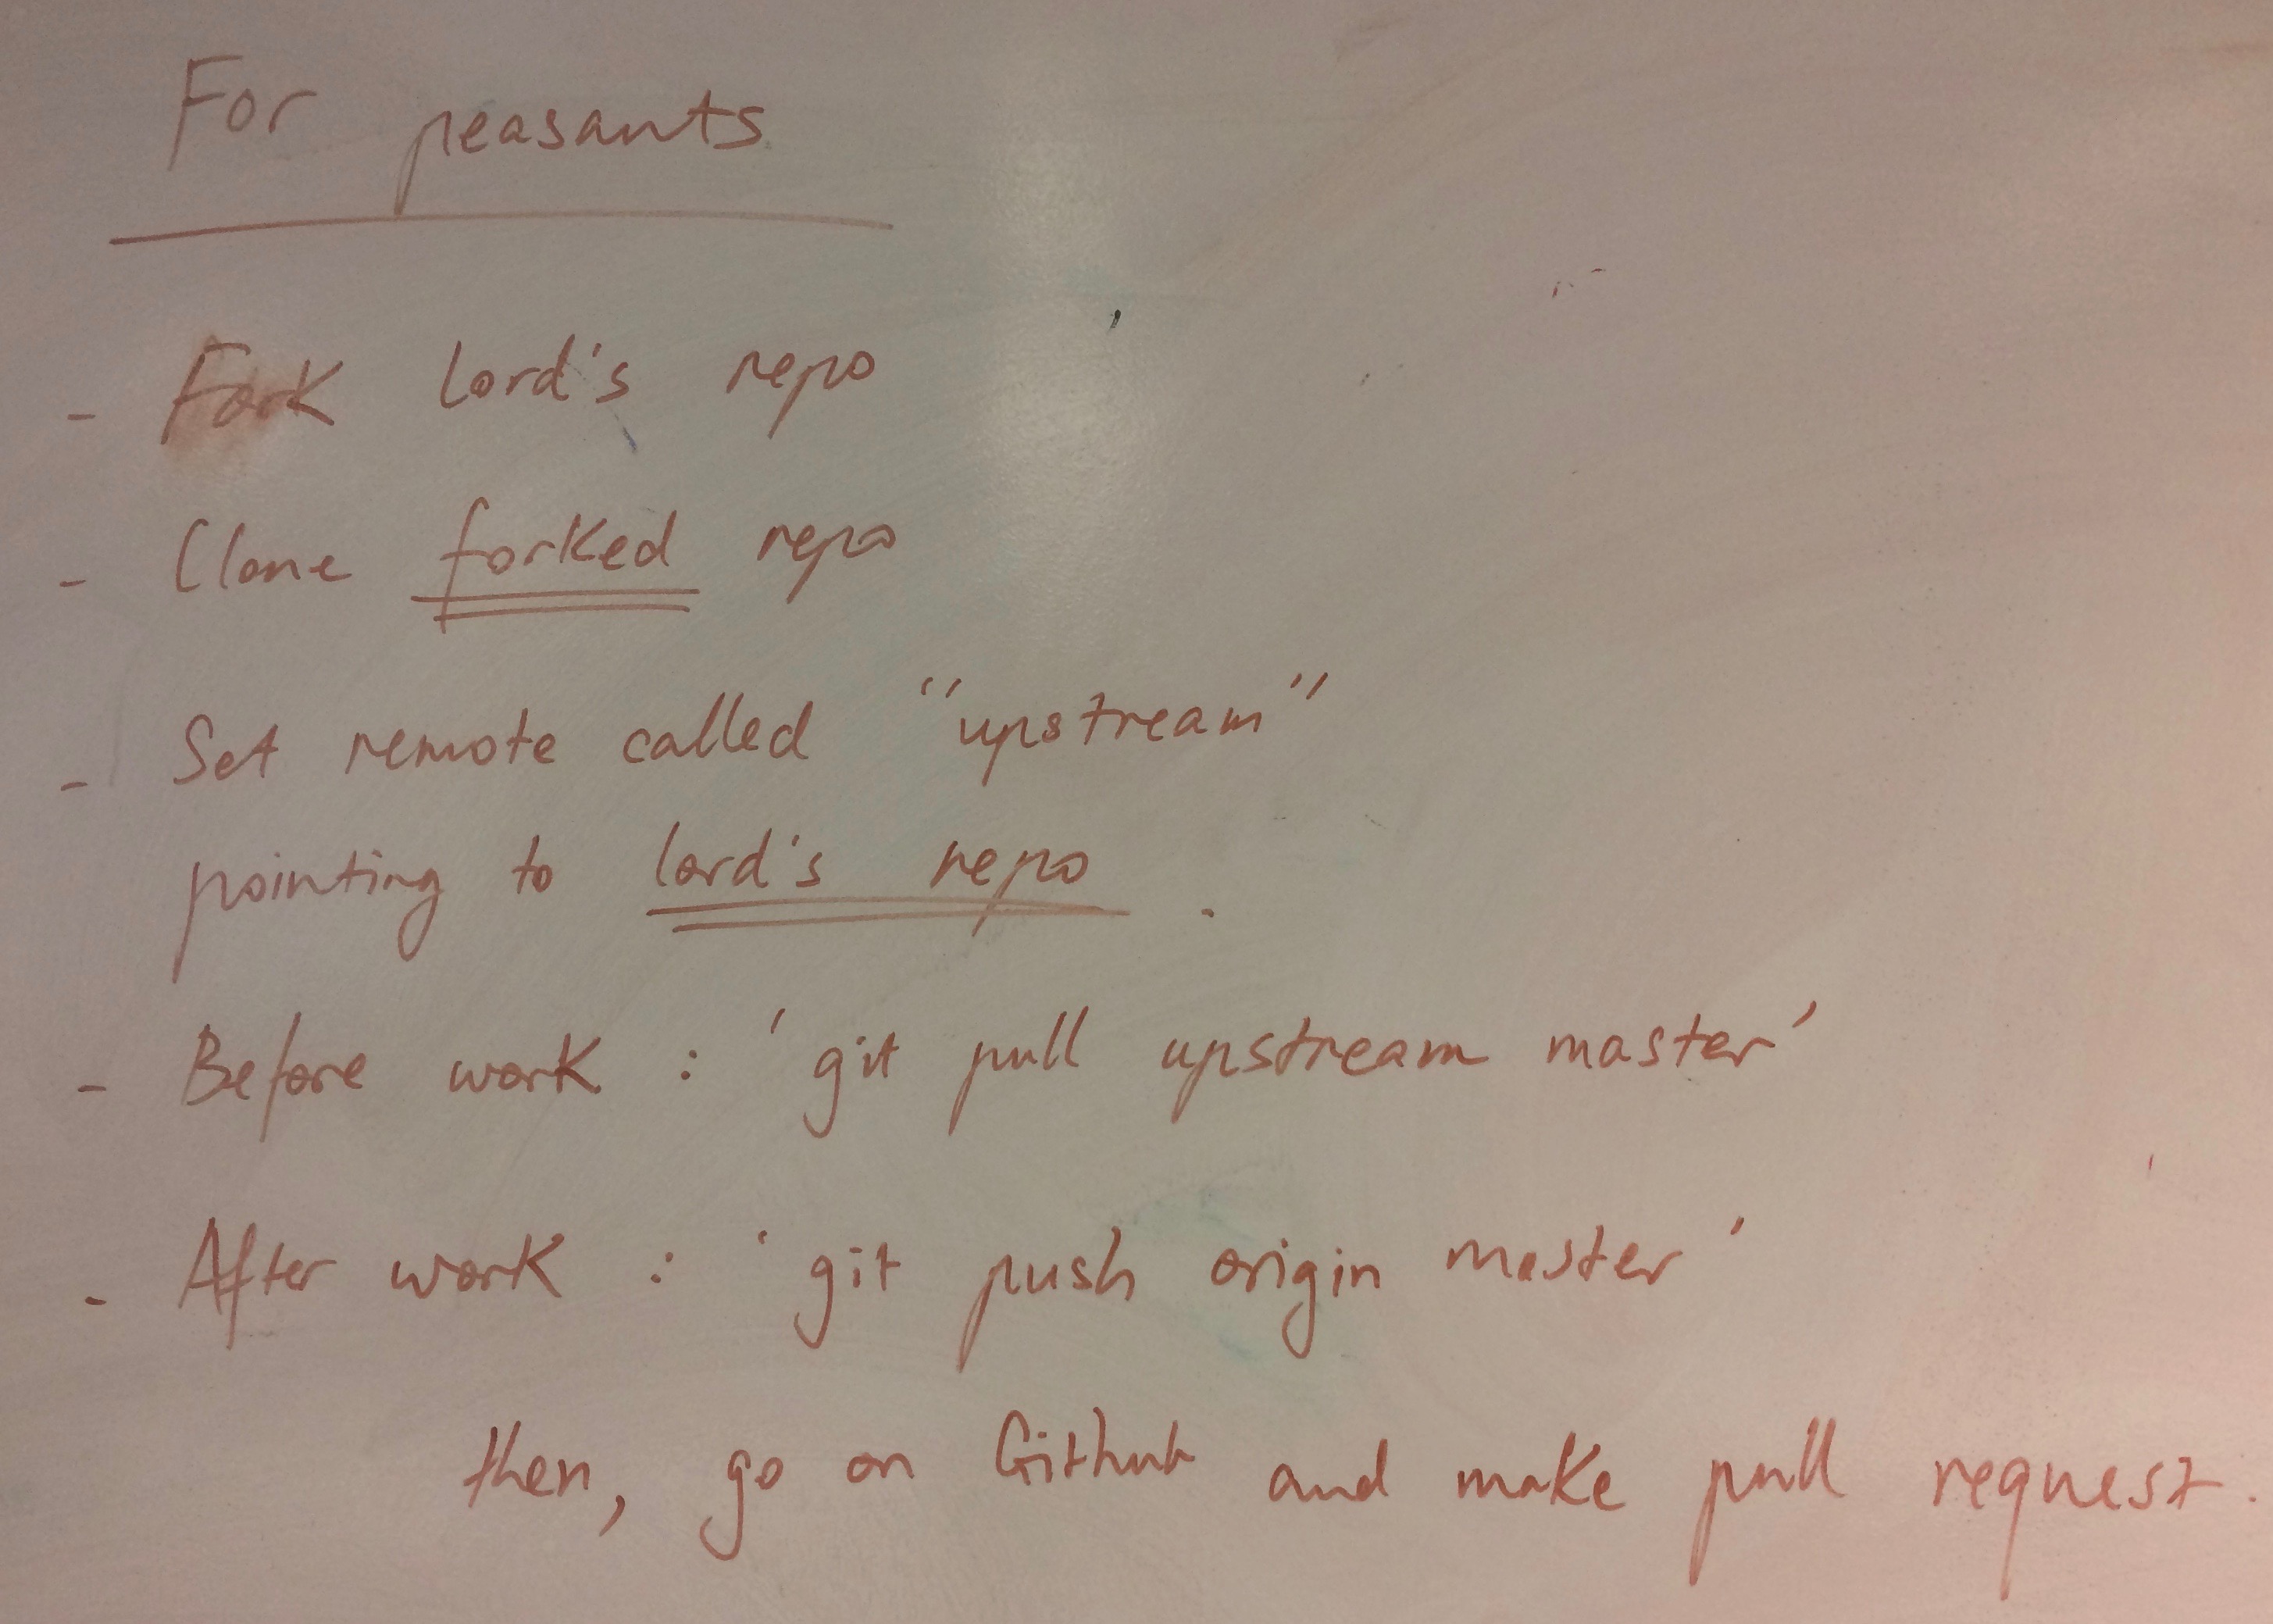 For peasants
- Fork lord's repo
- Clone forked repo
- Set remote called "upstream"
pointing to lord's repo .
- Before work : 'git pull upstream master'
- After work : 'git push origin master'
then, go on Github and make pull request.